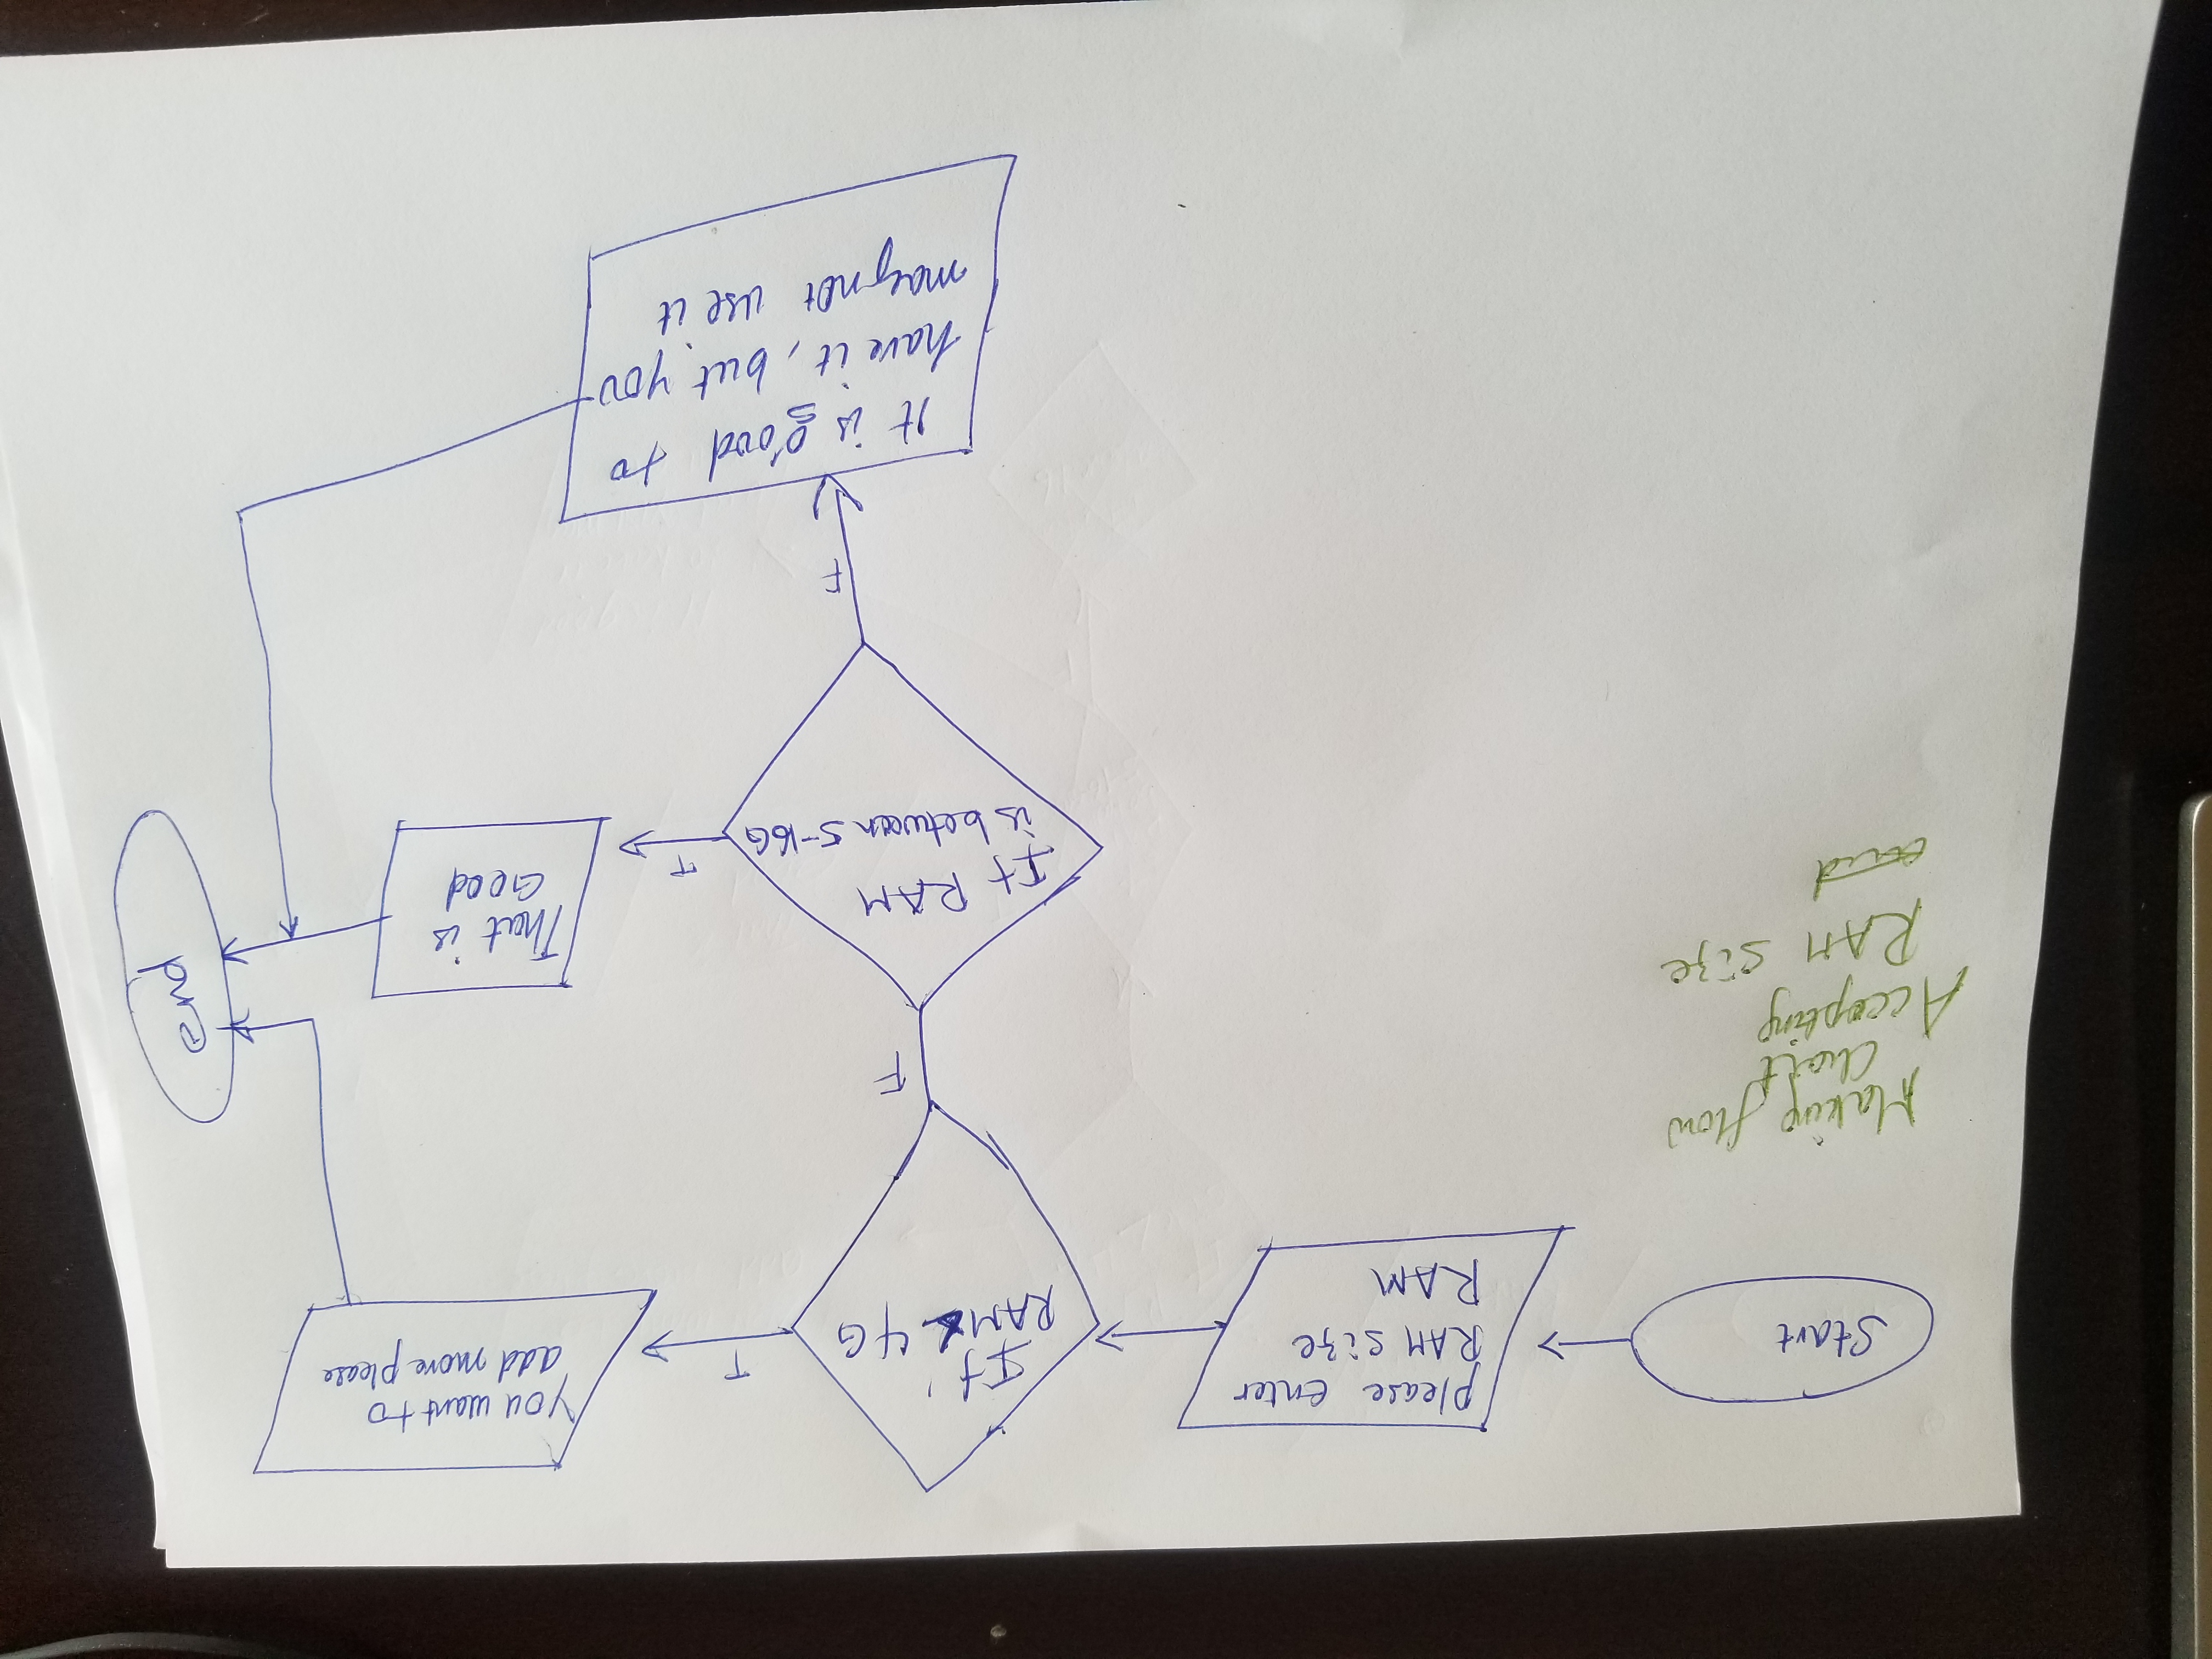 Start
Please enter
RAM size
RAM
If
RAM < 4G
T
You want to
add more please
F
If RAM
is between 5-16G
T
That is
Good
end
F
It is good to
have it, but you
may not use it
Making flow
Chart
Accepting
RAM size